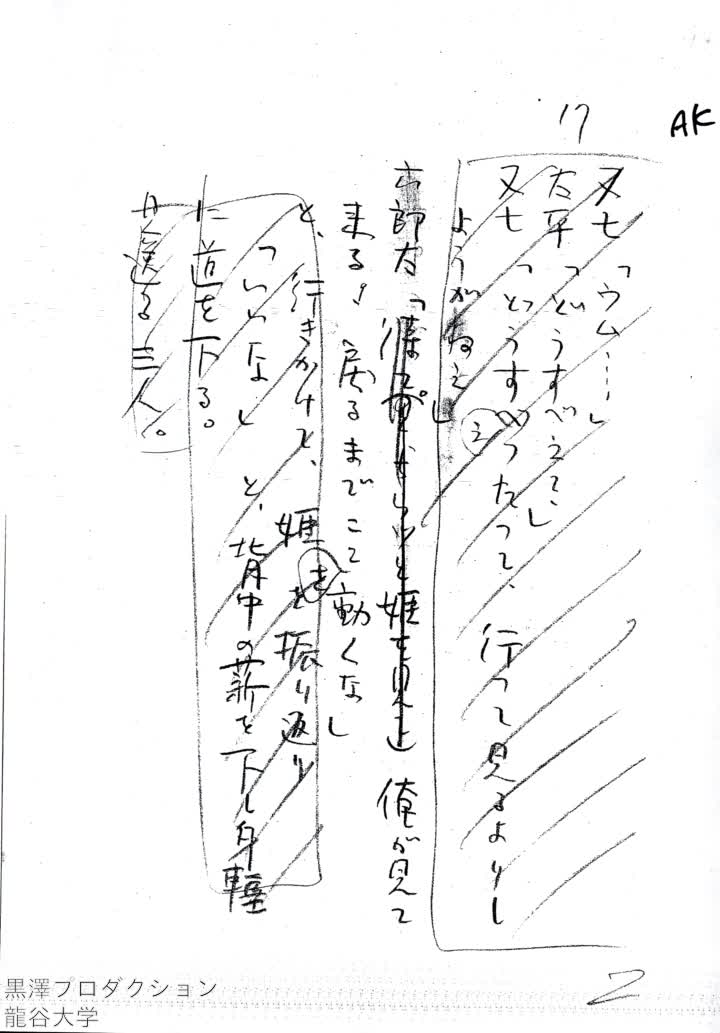 17
AK
又七「ウム……」
太平「どうすべえ？」
又七「どうすべったって、行って見るよりし
ようがねえ」
え
六郎太「俺が見て
来る！戻るまでこゝ動くなし
と、行きかけて、姫を振り返り
「いいな」と、背中の薪を下し身軽
に道を下る。
見送る三人。
2
黒澤プロダクション
龍谷大学